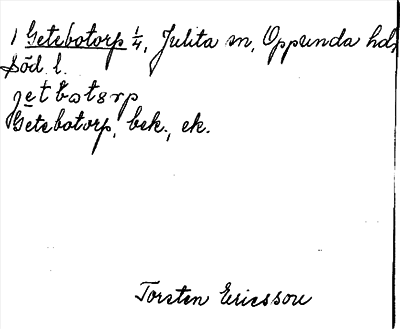 1 Getebotorp ¼, Julita sn, Oppunda hd,
Söd. l.
Getebotorp, bek., ek.
Torsten Ericsson